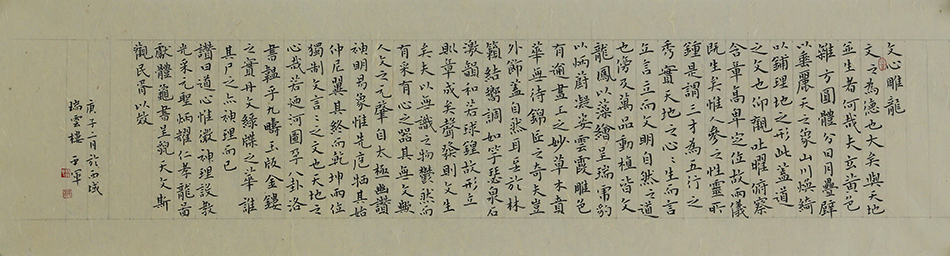 文心雕龍
文之為德也大矣與天地
並生者何哉夫玄黃色
雜方圓體分日月疊璧
以垂麗天之象山川煥綺
以鋪理地之形此蓋道
之文也仰觀吐曜俯察
含章高卑定位故兩儀
既生矣惟人參之性靈所
鍾是謂三才為五行之
秀實天地之心々生而言
立言立而文明自然之道
也傍及萬品動植皆文
龍鳳以藻繪呈瑞虎豹
以炳蔚凝姿雲霞雕色
有逾畫工之妙草木賁
華無待錦匠之奇夫豈
外飾蓋自然耳至於林
籟結響調如竽瑟泉石
激韻和若球鍠故形立
則章成矣聲發則文生
矣夫以無識之物鬱然而
有采有心之器其無文歟
人文之元肇自太極幽讚
神明易象惟先庖犧其始
仲尼翼其終而乾坤兩位
獨制文言々之文也天地之
心哉若迺河圖孕八卦洛
書韞乎九疇玉版金鏤
之實丹文綠牒之華誰
其尸之亦神理而已
讚曰道心惟微神理設教
光采元聖炳耀仁孝龍圖
獻體龜書呈貌天文斯
觀民胥以效
庚子二月於西城
瑞雲樓